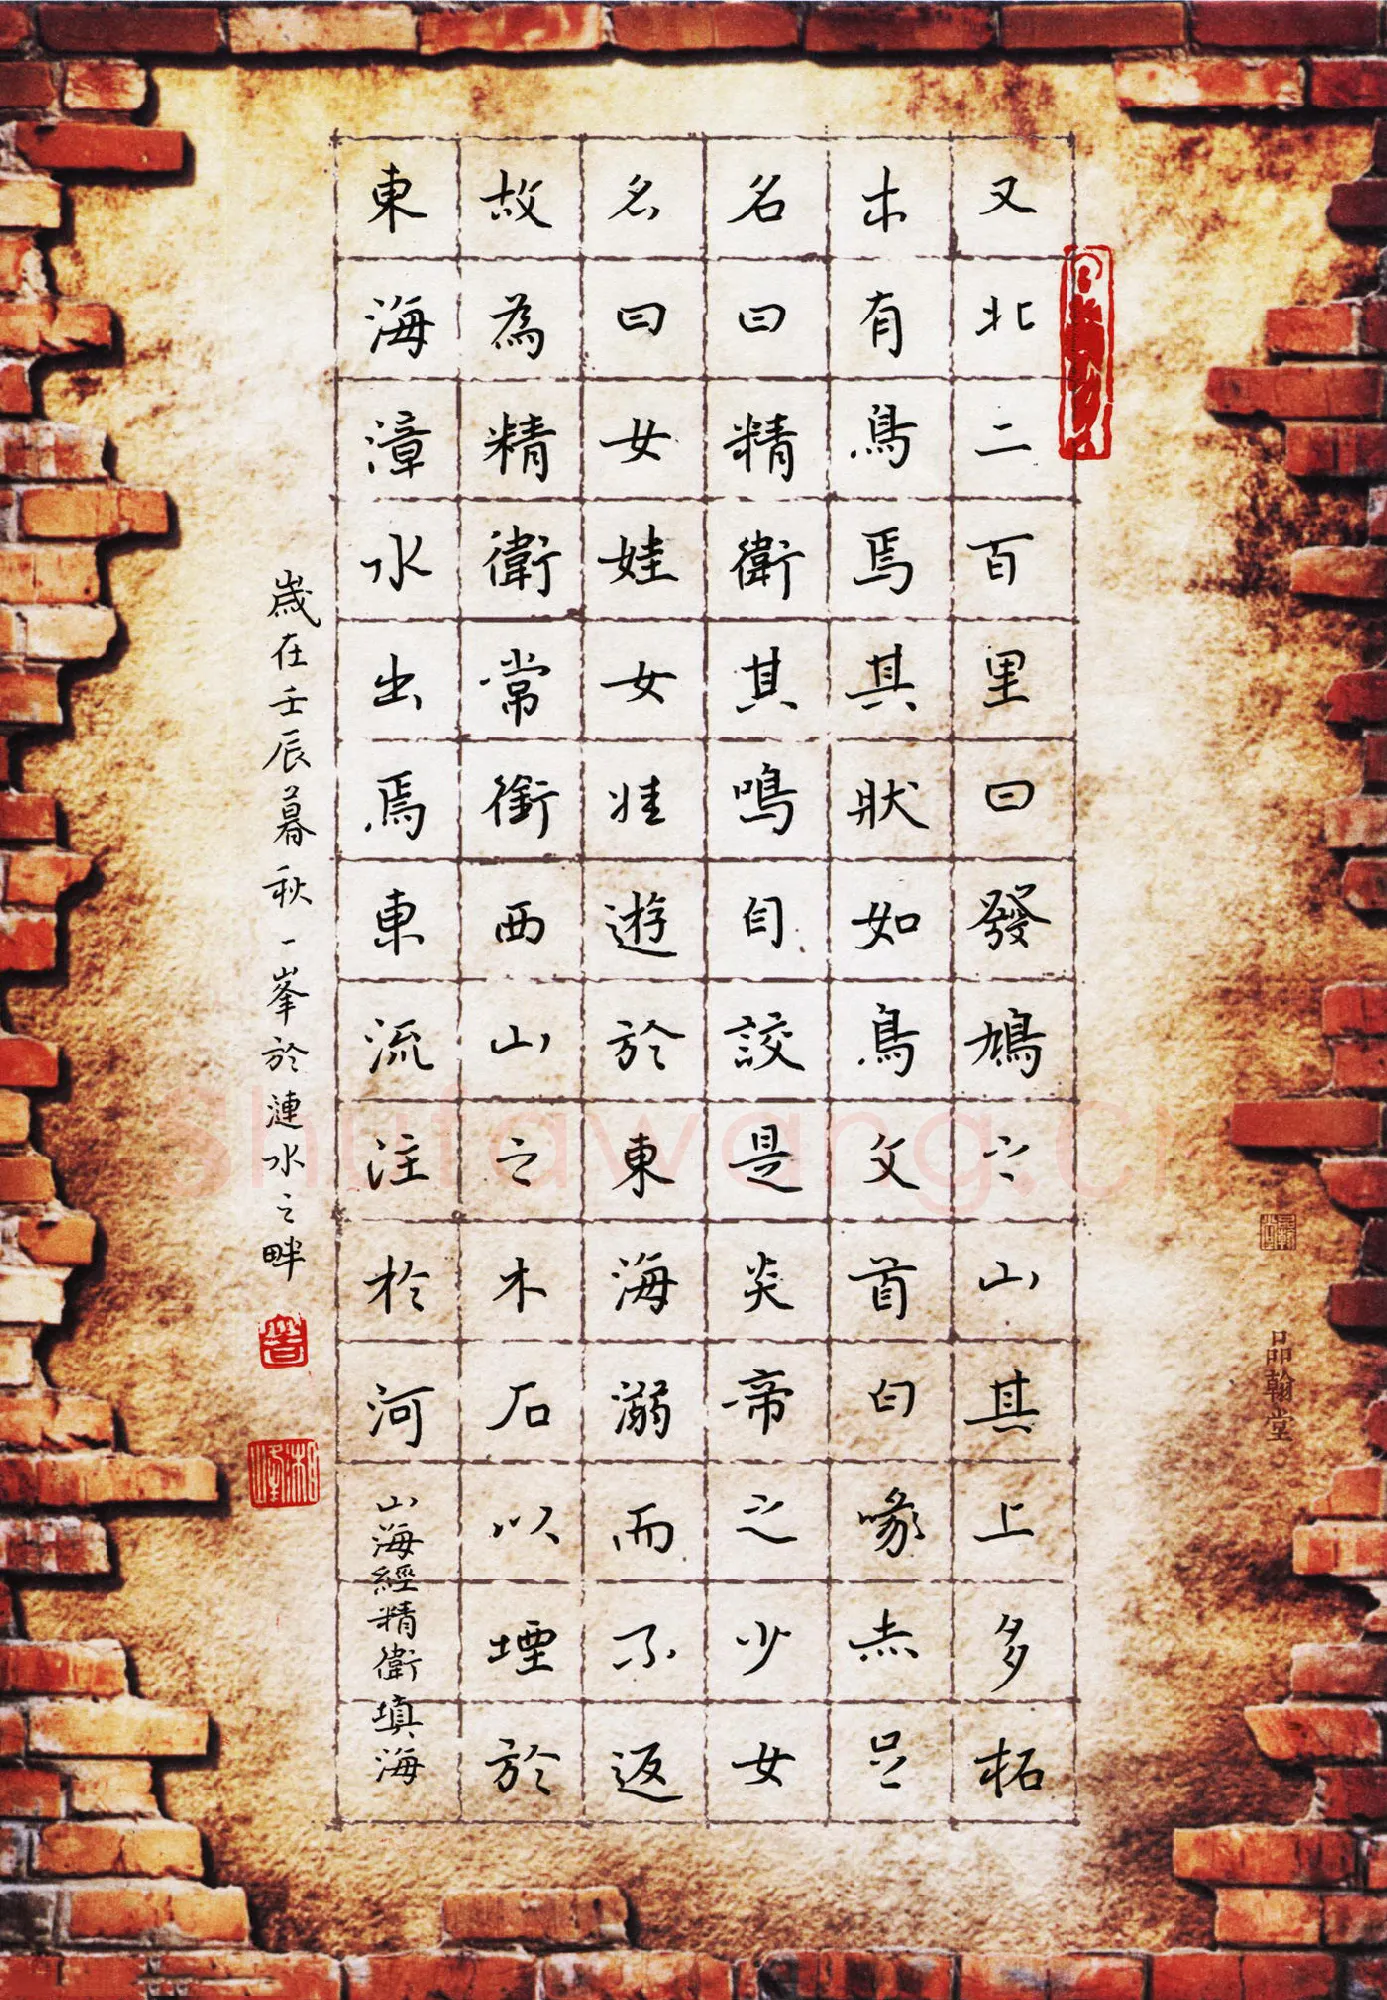 又北二百里曰發鳩之山其上多柘
木有鳥焉其狀如鳥文首白喙赤足
名曰精衛其鳴自詨是炎帝之少女
名曰女娃女娃遊於東海溺而不返
故為精衛常銜西山之木石以堙於
東海漳水出焉東流注於河
山海經精衛填海
歲在壬辰暮秋一峯於漣水之畔
品翰堂
shufawang.cn